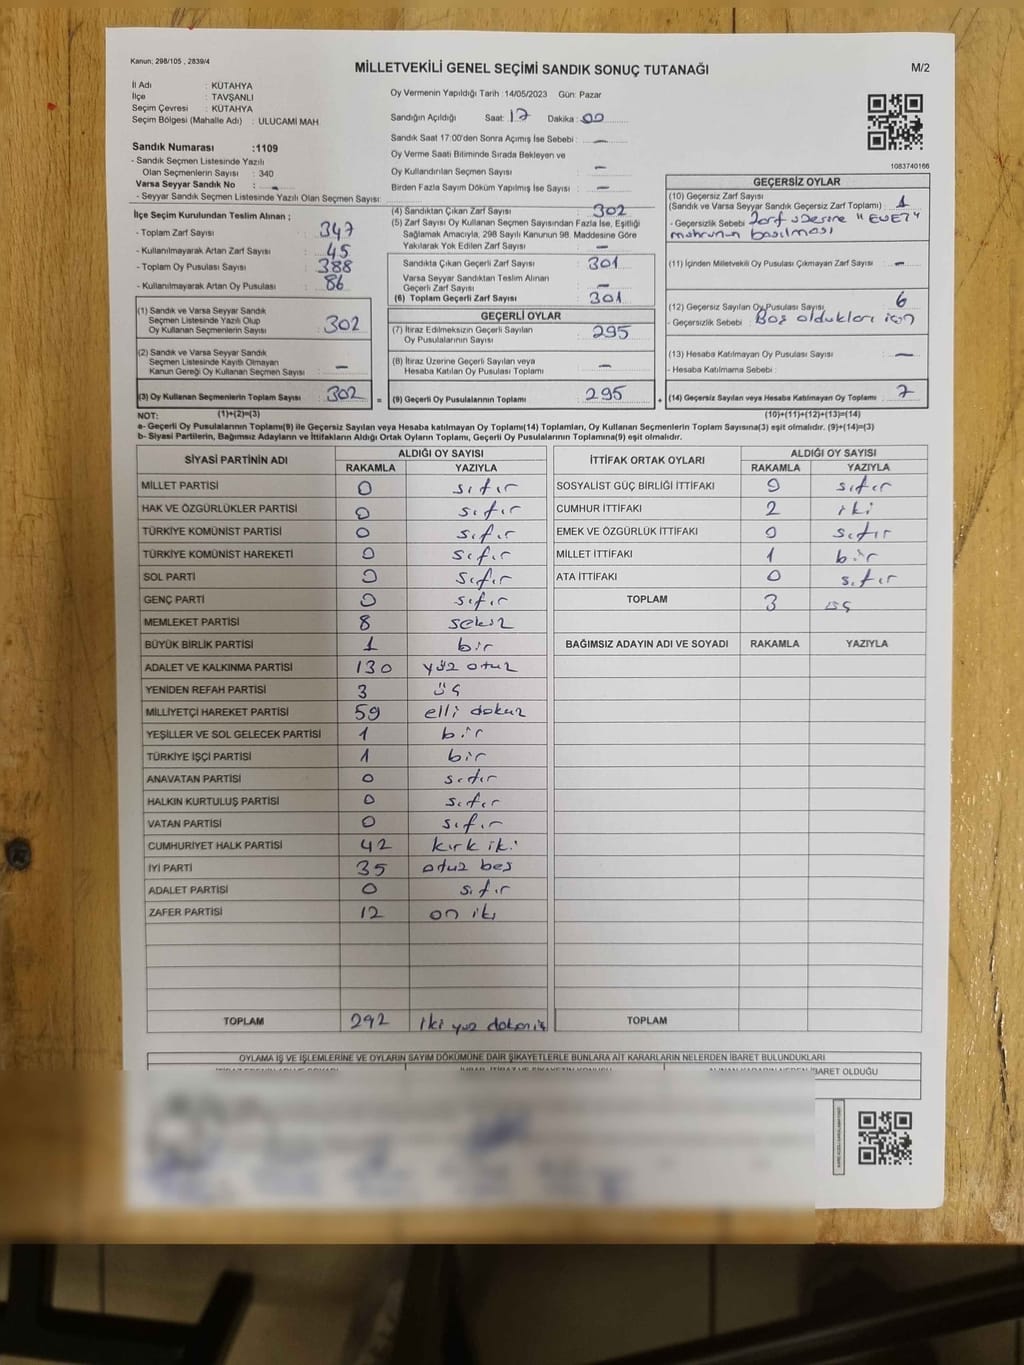 Kanun; 298/105 , 2839/4
MİLLETVEKİLİ GENEL SEÇİMİ SANDIK SONUÇ TUTANAĞI
M/2
İl Adı : KÜTAHYA
İlçe : TAVŞANLI
Seçim Çevresi : KÜTAHYA
Seçim Bölgesi (Mahalle Adı) : ULUCAMİ MAH
Sandık Numarası :1109
- Sandık Seçmen Listesinde Yazılı
Olan Seçmenlerin Sayısı : 340
Varsa Seyyar Sandık No : -
- Seyyar Sandık Seçmen Listesinde Yazılı Olan Seçmen Sayısı:
Oy Vermenin Yapıldığı Tarih :14/05/2023 Gün: Pazar
Sandığın Açıldığı Saat: 17 Dakika : 00
Sandık Saat 17:00'den Sonra Açılmış İse Sebebi : -
Oy Verme Saati Bitiminde Sırada Bekleyen ve
Oy Kullandırılan Seçmen Sayısı : -
Birden Fazla Sayım Döküm Yapılmış İse Sayısı : -
1083740166
İlçe Seçim Kurulundan Teslim Alınan ;
- Toplam Zarf Sayısı : 347
- Kullanılmayarak Artan Zarf Sayısı : 45
- Toplam Oy Pusulası Sayısı : 388
- Kullanılmayarak Artan Oy Pusulası : 86
(1) Sandık ve Varsa Seyyar Sandık
Seçmen Listesinde Yazılı Olup
Oy Kullanan Seçmenlerin Sayısı : 302
(2) Sandık ve Varsa Seyyar Sandık
Seçmen Listesinde Kayıtlı Olmayan
Kanun Gereği Oy Kullanan Seçmen Sayısı : -
(3) Oy Kullanan Seçmenlerin Toplam Sayısı : 302 =
(4) Sandıktan Çıkan Zarf Sayısı : 302
(5) Zarf Sayısı Oy Kullanan Seçmen Sayısından Fazla İse, Eşitliği
Sağlamak Amacıyla, 298 Sayılı Kanunun 98. Maddesine Göre
Yakılarak Yok Edilen Zarf Sayısı : -
Sandıkta Çıkan Geçerli Zarf Sayısı : 301
Varsa Seyyar Sandıktan Teslim Alınan
Geçerli Zarf Sayısı : -
(6) Toplam Geçerli Zarf Sayısı : 301
GEÇERLİ OYLAR
(7) İtiraz Edilmeksizin Geçerli Sayılan
Oy Pusulalarının Sayısı : 295
(8) İtiraz Üzerine Geçerli Sayılan veya
Hesaba Katılan Oy Pusulası Toplamı : -
(9) Geçerli Oy Pusulalarının Toplamı : 295 +
GEÇERSİZ OYLAR
(10) Geçersiz Zarf Sayısı
(Sandık ve Varsa Seyyar Sandık Geçersiz Zarf Toplamı) : 1
- Geçersizlik Sebebi : Zarf üzerine "EVET"
mührünün basılması
(11) İçinden Milletvekili Oy Pusulası Çıkmayan Zarf Sayısı : -
(12) Geçersiz Sayılan Oy Pusulası Sayısı : 6
- Geçersizlik Sebebi : Boş oldukları için
(13) Hesaba Katılmayan Oy Pusulası Sayısı : -
- Hesaba Katılmama Sebebi :
(14) Geçersiz Sayılan veya Hesaba Katılmayan Oy Toplamı : 7
NOT: (1)+(2)=(3) (10)+(11)+(12)+(13)=(14)
a- Geçerli Oy Pusulalarının Toplamı(9) ile Geçersiz Sayılan veya Hesaba Katılmayan Oy Toplamı(14) Toplamları, Oy Kullanan Seçmenlerin Toplam Sayısına(3) eşit olmalıdır. (9)+(14)=(3)
b- Siyasi Partilerin, Bağımsız Adayların ve İttifakların Aldığı Ortak Oyların Toplamı, Geçerli Oy Pusulalarının Toplamına(9) eşit olmalıdır.
SİYASİ PARTİNİN ADI ALDIĞI OY SAYISI
RAKAMLA YAZIYLA
MİLLET PARTİSİ 0 sıfır
HAK VE ÖZGÜRLÜKLER PARTİSİ 0 sıfır
TÜRKİYE KOMÜNİST PARTİSİ 0 sıfır
TÜRKİYE KOMÜNİST HAREKETİ 0 sıfır
SOL PARTİ 0 sıfır
GENÇ PARTİ 0 sıfır
MEMLEKET PARTİSİ 8 sekiz
BÜYÜK BİRLİK PARTİSİ 1 bir
ADALET VE KALKINMA PARTİSİ 130 yüz otuz
YENİDEN REFAH PARTİSİ 3 üç
MİLLİYETÇİ HAREKET PARTİSİ 59 elli dokuz
YEŞİLLER VE SOL GELECEK PARTİSİ 1 bir
TÜRKİYE İŞÇİ PARTİSİ 1 bir
ANAVATAN PARTİSİ 0 sıfır
HALKIN KURTULUŞ PARTİSİ 0 sıfır
VATAN PARTİSİ 0 sıfır
CUMHURİYET HALK PARTİSİ 42 kırk iki
İYİ PARTİ 35 otuz beş
ADALET PARTİSİ 0 sıfır
ZAFER PARTİSİ 12 on iki
TOPLAM 292 iki yüz
İTTİFAK ORTAK OYLARI ALDIĞI OY SAYISI
RAKAMLA YAZIYLA
SOSYALİST GÜÇ BİRLİĞİ İTTİFAKI 0 sıfır
CUMHUR İTTİFAKI 2 iki
EMEK VE ÖZGÜRLÜK İTTİFAKI 0 sıfır
MİLLET İTTİFAKI 1 bir
ATA İTTİFAKI 0 sıfır
TOPLAM 3 üç
BAĞIMSIZ ADAYIN ADI VE SOYADI RAKAMLA YAZIYLA
TOPLAM
OYLAMA İŞ VE İŞLEMLERİNE VE OYLARIN SAYIM DÖKÜMÜNE DAİR ŞİKAYETLERLE BUNLARA AİT KARARLARIN NELERDEN İBARET BULUNDUKLARI
İBARET OLDUĞU